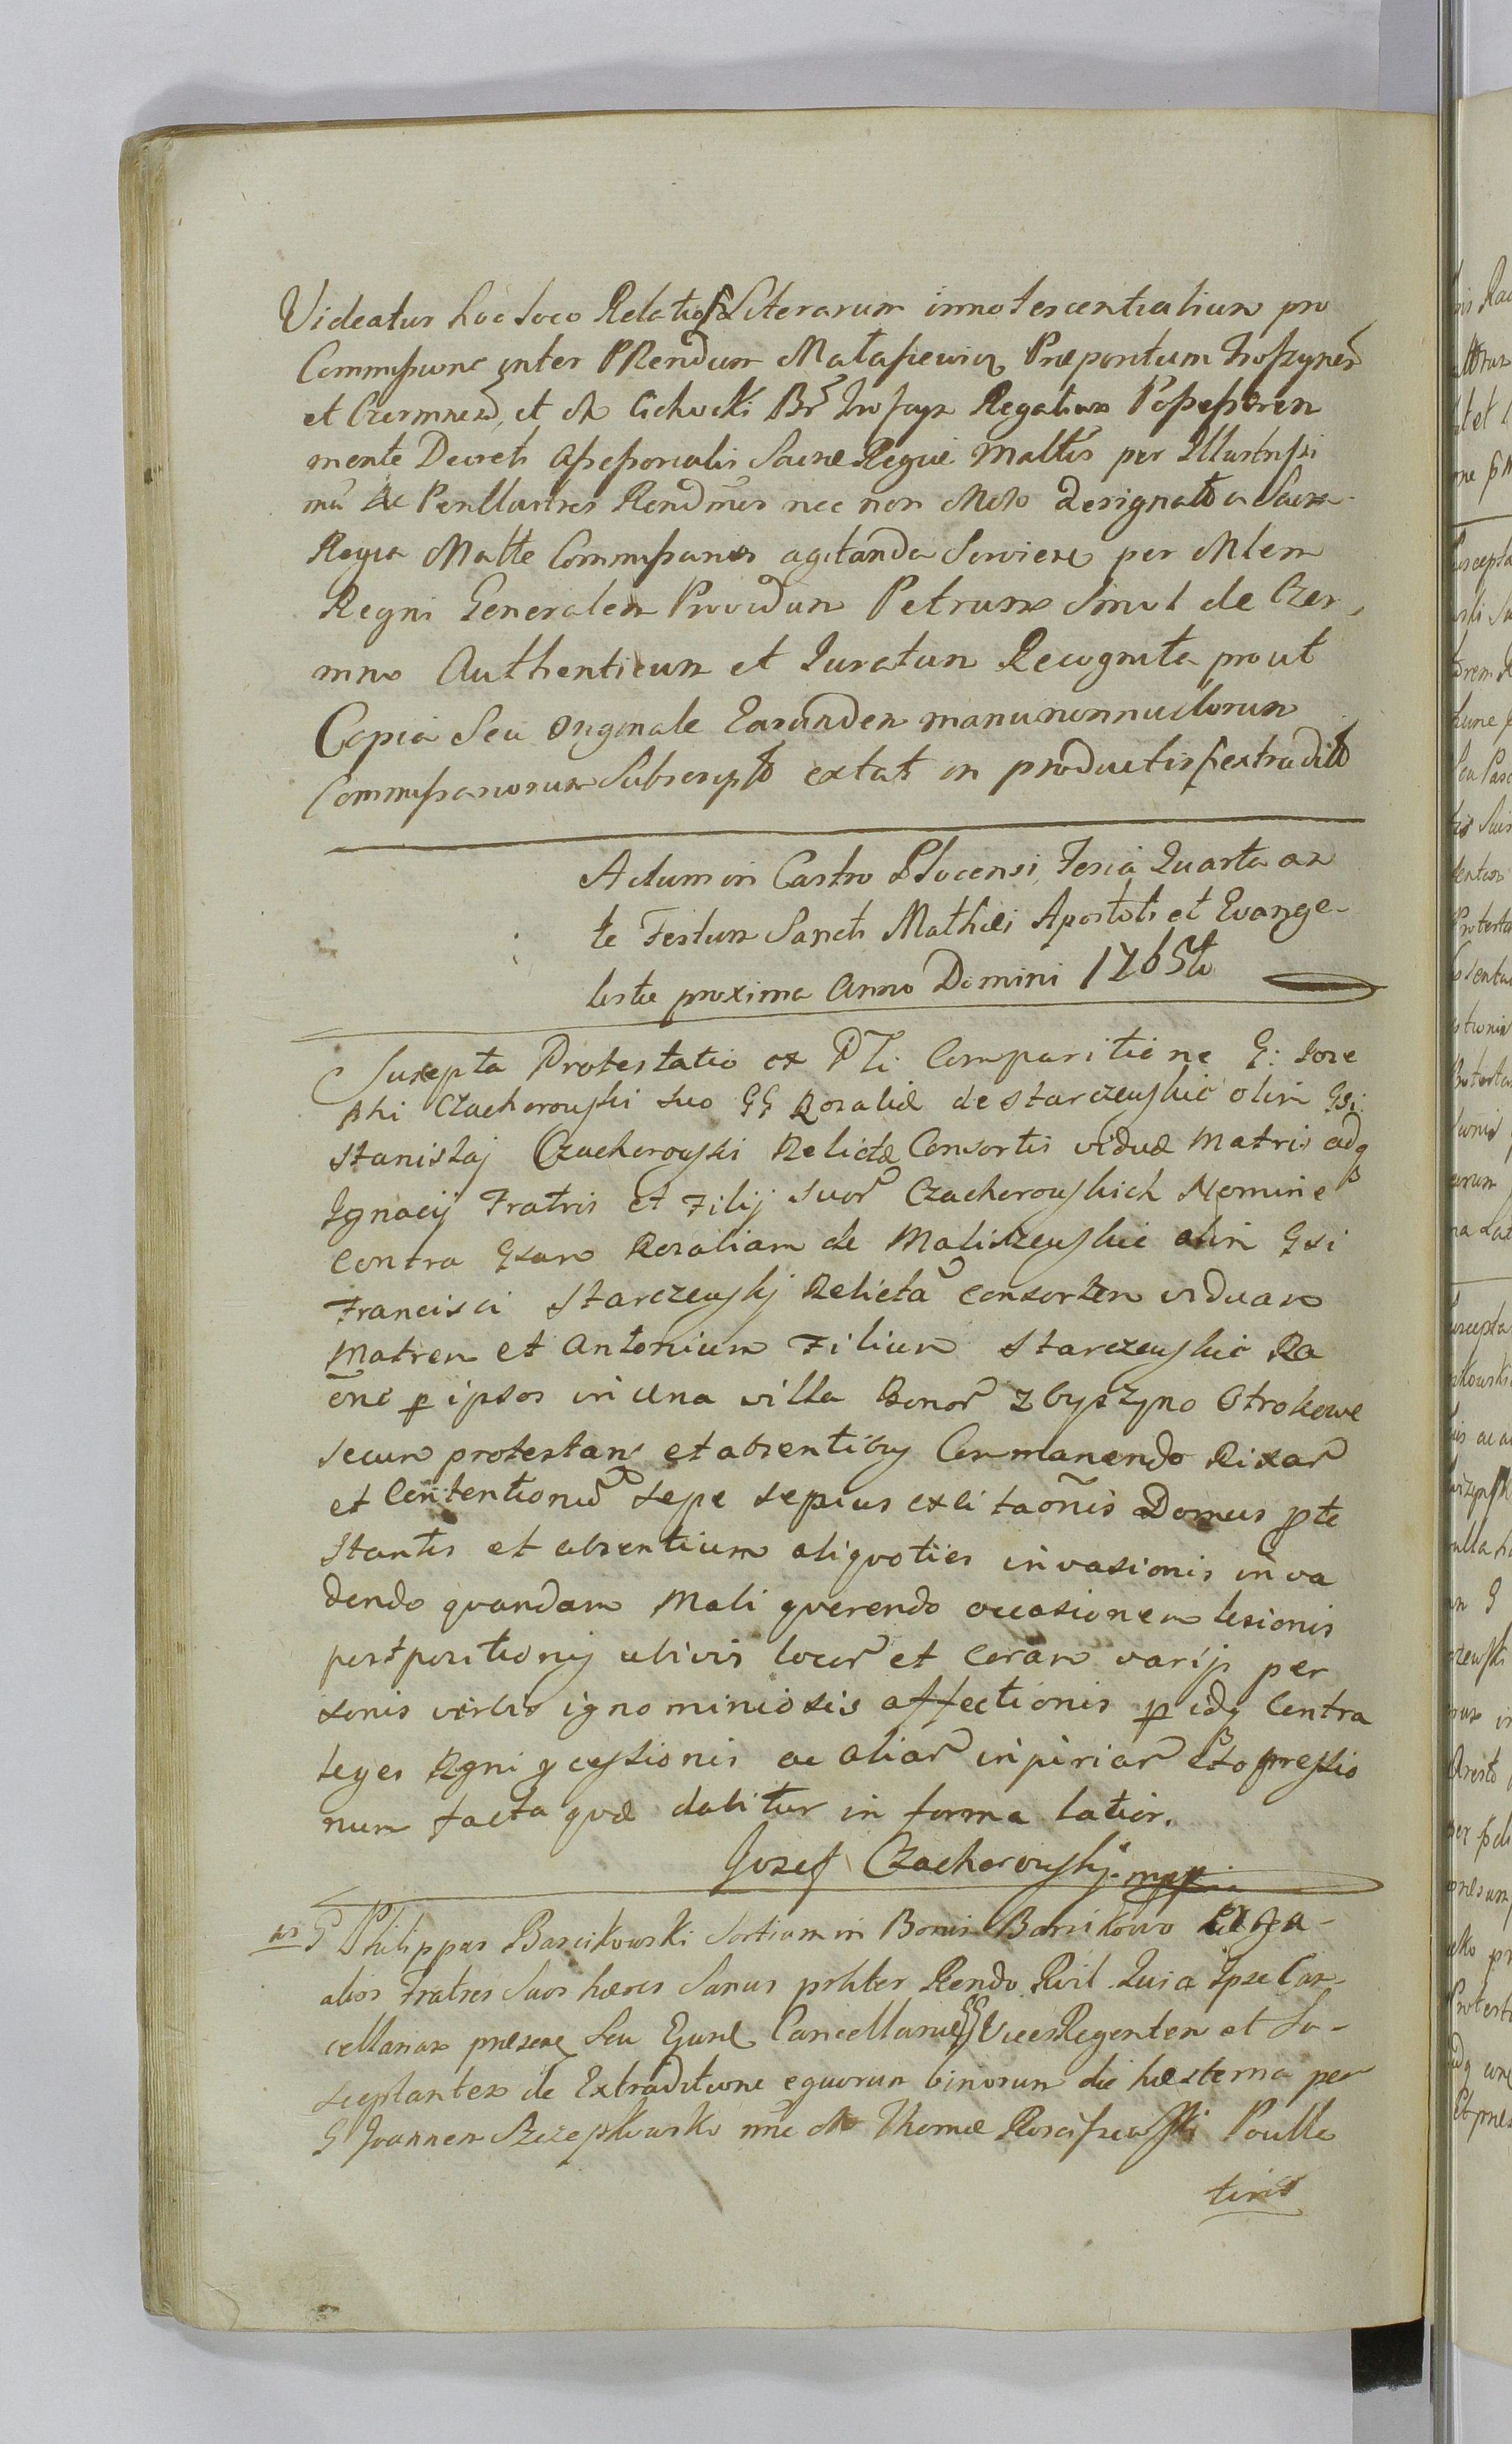 Videatur hoc loco Relatio Literarum innotescentialium pro
Commissione inter PRendum Matasiewicz Præpositum Troszynen̄
et Czermnen̄, et M Cichocki Br̄ Troszyn Regalium Possessorem
mente Decreti Assessorialis Sacræ Regiæ Mattis per Illustrissi
mū ac Perillustres Rendmos nec non Mdo designatto a Sacra
Regia Matte Commissarios agitanda Serviens per Mlem
Regni Generalem Providum Petrum Smol de Czer,
mno Authenticum et Juratum Recognita prout
Copia Seu Originale Earundem manu nonnullorum
Commissariorum Subscripto extat in productis extradito
Actum in Castro Plocensi, Feria Quarta an
te Festum Sancti Mathæi Apostoli et Evange-
listæ proxima Anno Domini 1765to
Suscepta Protestatio ex PTi Comparitione G: Jose
phi Czachorowski suo GG Rozaliæ de Starczewskie olim Gsi:
Stanislaj Czachorowski Relictæ Consortis viduæ Matris adq
Ignacij Fratris et Filij suor̄ Czachorowskich Nomine
Contra Gsam Rozaliam de Maliszewskie olim Gsi
Francisci Starczewskj Relictā Consortem viduam
Matrem et Antonium Filium Starczewskie Ra
one p ipsos in una villa Bonor̄ Zbyszyno Otrokowe
secum protestan̄ et absentibus Commanendo Rixar̄
et Contentionū sepe sepius excitaōnis Domus pte
stantis et absentium aliquoties invasionis inva
dendo quandam Mali querendo occasionem lesionis
postpositionis ubivis locor̄ et coram varijs per
sonis verbis ignominiosis affectionis p idq Contra
leges Rgni gcessionis ac aliar̄ injuriar̄ et oppressio
num facta quæ dabitur in forma latior.
Jozef Czachorowskj mpp
G Philippus Barcikowski Sortium in Bonis Barcikowo
alios Fratres Suos hæres Sanus pblter Rendo Rvit Quia Ipse Can-
cellariam præsen Seu Ejusd Cancellariæ GG Vices Regentem et Su-
sceptantem de Extraditione equorum binorum die hæsterna per
G Joannem Szczepkowski nne M Thomæ Rosciszewski Poulle
tivis